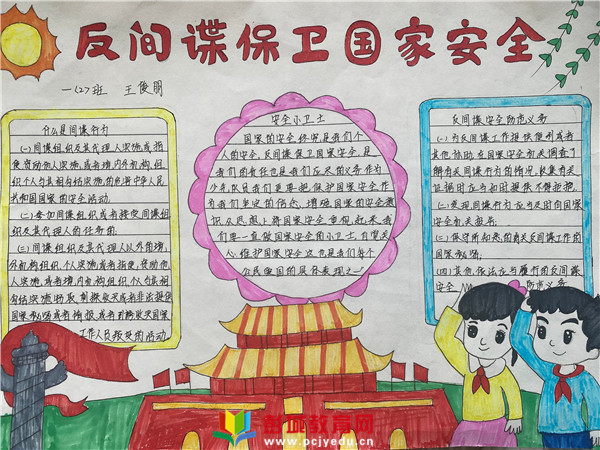 反间谍保卫国家安全
一(2)班 王俊朋
什么是间谍行为
(一)间谍组织及其代理人实施或指
使、资助他人实施,或者境内外机构、组
织、个人与其相勾结实施的危害中华人民
共和国国家安全的活动。
(二)参加间谍组织或者接受间谍组
织及其代理人的任务的。
(三)间谍组织及其代理人以外的境
外机构、组织、个人实施或者指使、资助他
人实施,或者境内机构、组织、个人与其相
勾结实施的窃取、刺探、收买或者非法提供
国家秘密或者情报,或者策动
工作人员叛变的活动
安全小卫士
国家的安全
人的安全,反间谍保卫国家安全,是
我们的责任也是我们应尽的义务,作为
少先队员我们更要把保护国家安全作
为我们坚定的信念,增强国家的安全意
识从思想上将国家安全重视起来,我
们要一直做国家安全的小卫士,自觉关
心、维护国家安全
公民爱国的具体表现之一
反间谍安全防范义务
(一)为反间谍工作提供便利或者
其他协助,在国家安全机关调查了
解有关间谍行为的情况、收集有关
证据时应当如实提供,不得拒绝。
(二)发现间谍行为应当及时向国家
安全机关报告。
(三)保守所知悉的有关反间谍工作的
国家秘密。
(四)其他依法应当履行的反间谍
安全 防范义务
彭城教育网
www.pcjyedu.cn